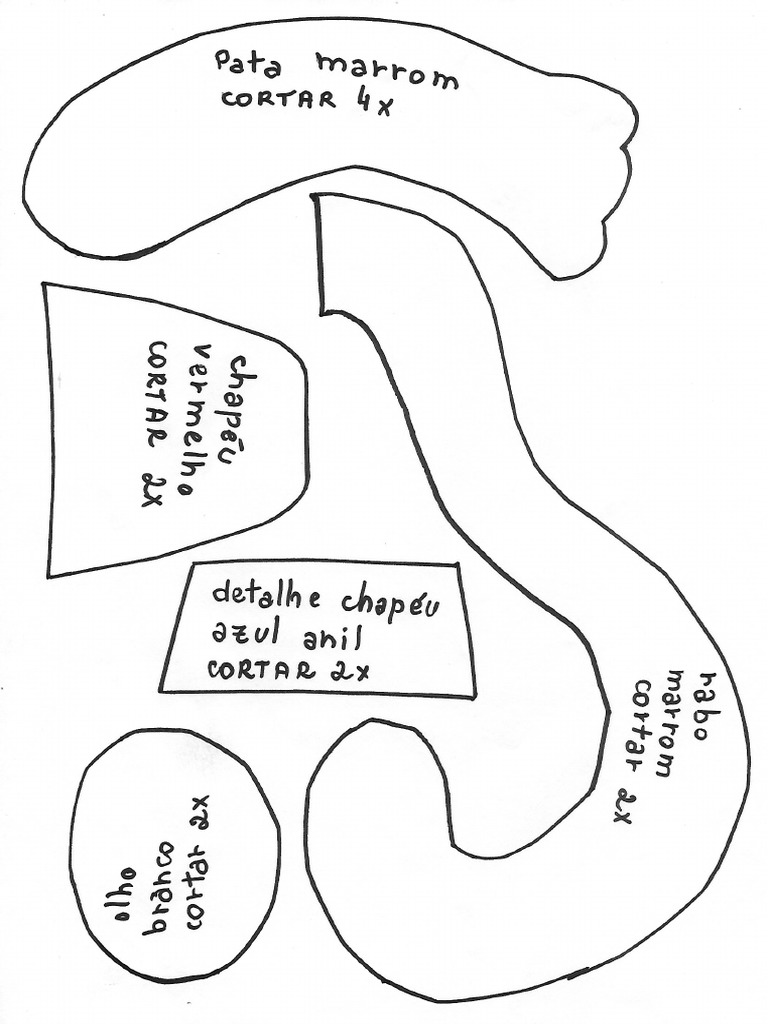 Pata marrom
CORTAR 4x
chapéu
vermelho
CORTAR 2x
detalhe chapéu
azul anil
CORTAR 2x
rabo
marrom
cortar 2x
olho
branco
cortar 2x